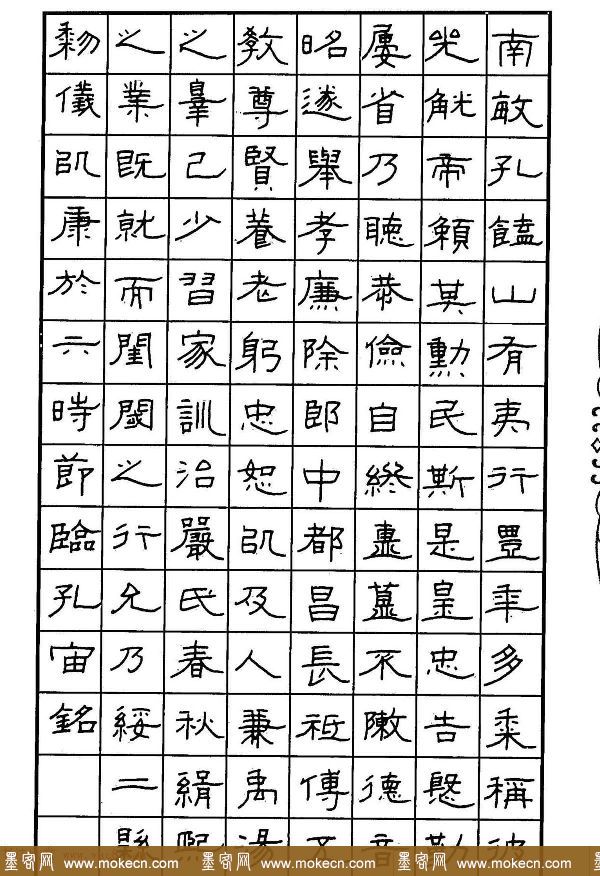 南畝孔饁山有夷行豐年多黍稱彼
兕觥帝賴其勳民斯是皇忠告慇勤
屢省乃聽恭儉自終簠簋不敶德音
昭遂舉孝廉除郎中都昌長祗傅五
教尊賢養老躬忠恕以及人兼禹湯
之辠己少習家訓治嚴氏春秋緝熙
之業既就而閨閾之行允乃綏二縣
黎儀以康於六時節臨孔宙銘
墨客网 www.mokecn.com 墨客网 www.mokecn.com 墨客网 www.mokecn.com